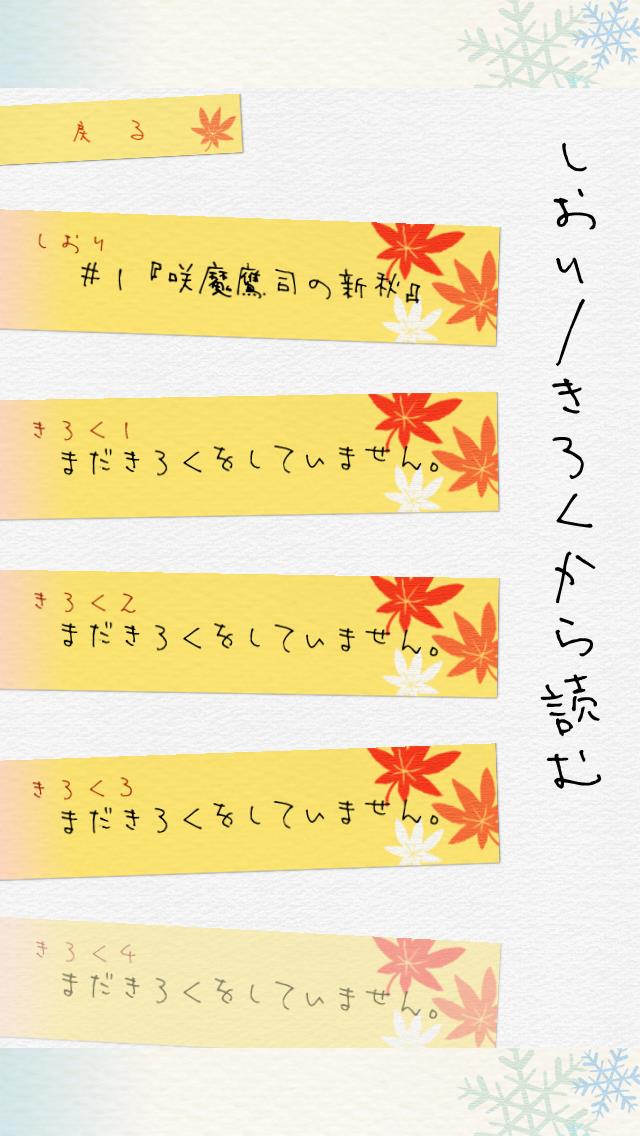 しおり/きろくから読む
戻る
しおり
#1『咲魔鷹司の新秋』
きろく1
まだきろくをしていません。
きろく2
まだきろくをしていません。
きろく3
まだきろくをしていません。
きろく4
まだきろくをしていません。